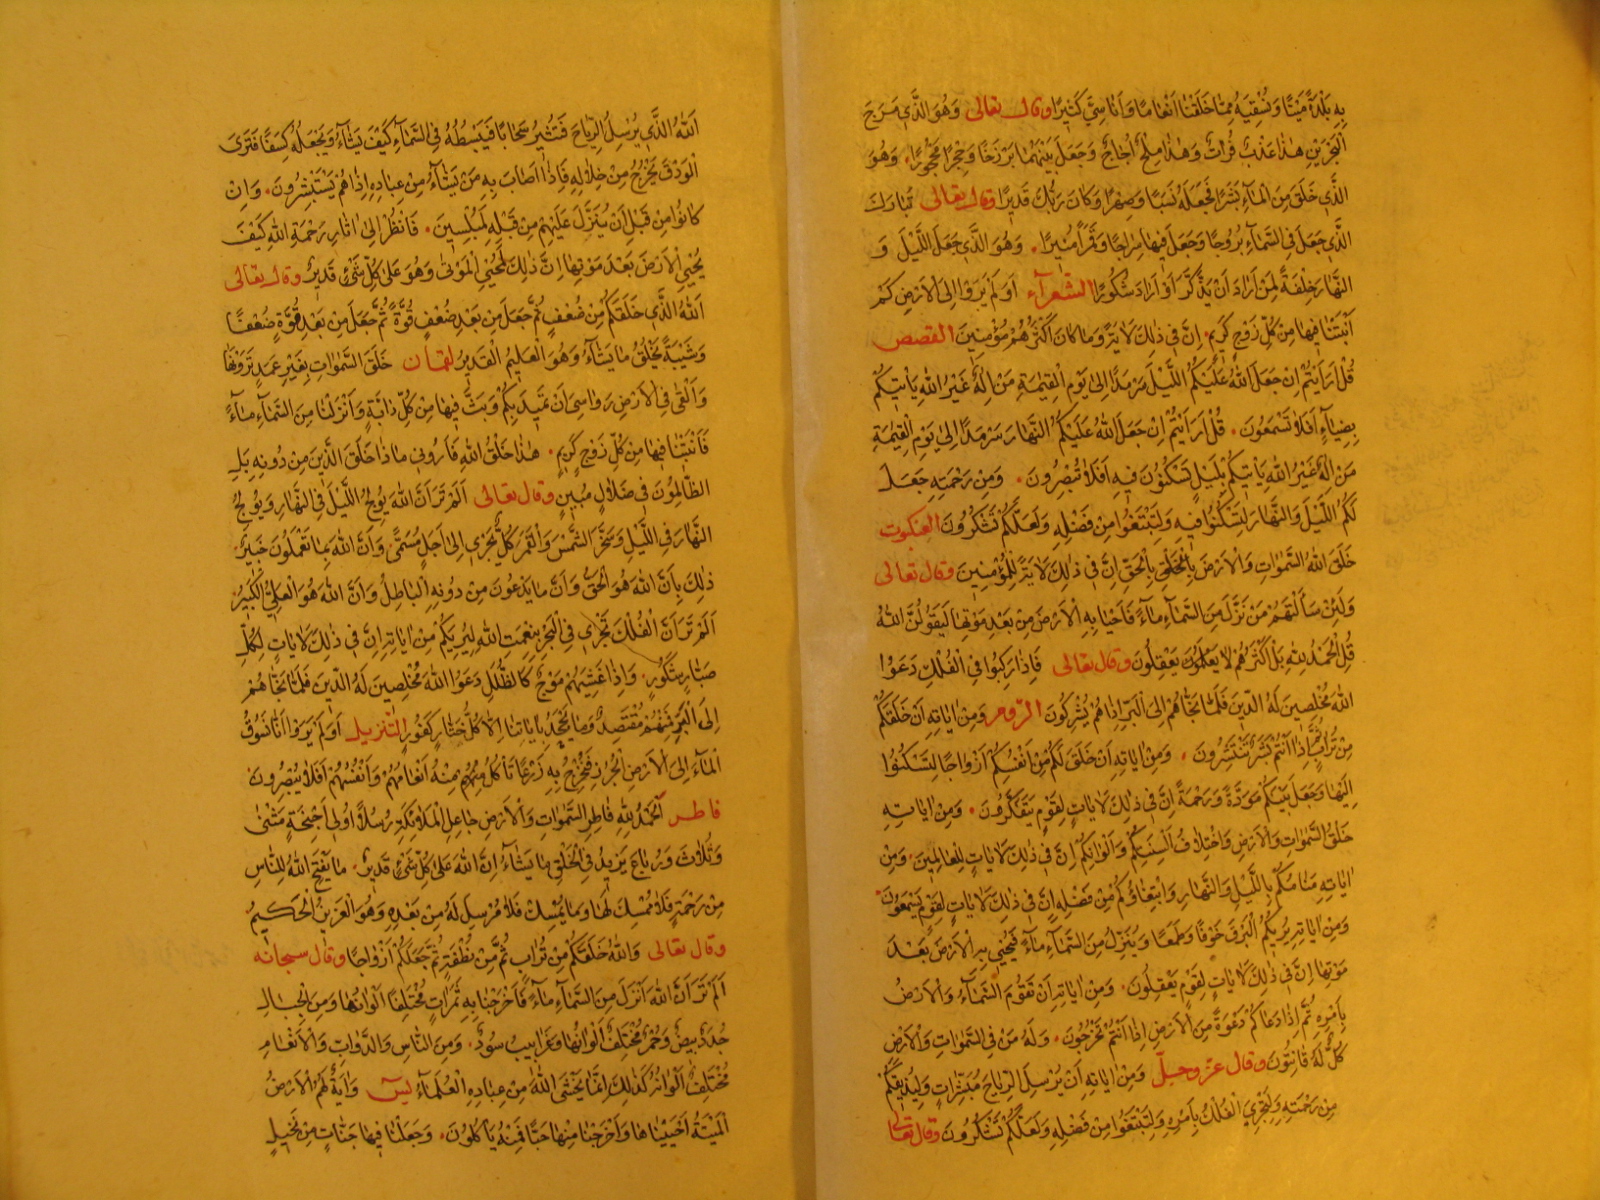 بِهِ بَلْدَةً مَيْتًا وَنُسْقِيَهُ مِمَّا خَلَقْنَا اَنْعَامًا وَاَنَاسِيَّ كَثِيرًا وقال تعالى وَهُوَ الَّذِي مَرَجَ
الْبَحْرَيْنِ هٰذَا عَذْبٌ فُرَاتٌ وَهٰذَا مِلْحٌ اُجَاجٌ وَجَعَلَ بَيْنَهُمَا بَرْزَخًا وَحِجْرًا مَحْجُورًا. وَهُوَ
الَّذِي خَلَقَ مِنَ الْمَآءِ بَشَرًا فَجَعَلَهُ نَسَبًا وَصِهْرًا وَكَانَ رَبُّكَ قَدِيرًا وقال تعالى تَبَارَكَ
الَّذِي جَعَلَ فِي السَّمَآءِ بُرُوجًا وَجَعَلَ فِيهَا سِرَاجًا وَقَمَرًا مُنِيرًا. وَهُوَ الَّذِي جَعَلَ اللَّيْلَ وَ
النَّهَارَ خِلْفَةً لِمَنْ اَرَادَ اَنْ يَذَّكَّرَ اَوْ اَرَادَ شُكُورًا الشعرآء اَوَلَمْ يَرَوْا اِلَى الْاَرْضِ كَمْ
اَنْبَتْنَا فِيهَا مِنْ كُلِّ زَوْجٍ كَرِيمٍ. اِنَّ فِي ذٰلِكَ لَاٰيَةً وَمَا كَانَ اَكْثَرُهُمْ مُؤْمِنِينَ القصص
قُلْ اَرَاَيْتُمْ اِنْ جَعَلَ اللهُ عَلَيْكُمُ اللَّيْلَ سَرْمَدًا اِلٰى يَوْمِ الْقِيٰمَةِ مَنْ اِلٰهٌ غَيْرُ اللهِ يَاْتِيكُمْ
بِضِيَآءٍ اَفَلَا تَسْمَعُونَ. قُلْ اَرَاَيْتُمْ اِنْ جَعَلَ اللهُ عَلَيْكُمُ النَّهَارَ سَرْمَدًا اِلٰى يَوْمِ الْقِيٰمَةِ
مَنْ اِلٰهٌ غَيْرُ اللهِ يَاْتِيكُمْ بِلَيْلٍ تَسْكُنُونَ فِيهِ اَفَلَا تُبْصِرُونَ. وَمِنْ رَحْمَتِهِ جَعَلَ
لَكُمُ اللَّيْلَ وَالنَّهَارَ لِتَسْكُنُوا فِيهِ وَلِتَبْتَغُوا مِنْ فَضْلِهِ وَلَعَلَّكُمْ تَشْكُرُونَ العنكبوت
خَلَقَ اللهُ السَّمٰوَاتِ وَالْاَرْضَ بِالْحَقِّ اِنَّ فِي ذٰلِكَ لَاٰيَةً لِلْمُؤْمِنِينَ وقال تعالى
وَلَئِنْ سَاَلْتَهُمْ مَنْ نَزَّلَ مِنَ السَّمَآءِ مَآءً فَاَحْيَا بِهِ الْاَرْضَ مِنْ بَعْدِ مَوْتِهَا لَيَقُولُنَّ اللهُ
قُلِ الْحَمْدُ لِلّٰهِ بَلْ اَكْثَرُهُمْ لَا يَعْقِلُونَ وقال تعالى فَاِذَا رَكِبُوا فِي الْفُلْكِ دَعَوُا
اللهَ مُخْلِصِينَ لَهُ الدِّينَ فَلَمَّا نَجّٰهُمْ اِلَى الْبَرِّ اِذَا هُمْ يُشْرِكُونَ الروم وَمِنْ اٰيَاتِهِ اَنْ خَلَقَكُمْ
مِنْ تُرَابٍ ثُمَّ اِذَا اَنْتُمْ بَشَرٌ تَنْتَشِرُونَ. وَمِنْ اٰيَاتِهِ اَنْ خَلَقَ لَكُمْ مِنْ اَنْفُسِكُمْ اَزْوَاجًا لِتَسْكُنُوا
اِلَيْهَا وَجَعَلَ بَيْنَكُمْ مَوَدَّةً وَرَحْمَةً اِنَّ فِي ذٰلِكَ لَاٰيَاتٍ لِقَوْمٍ يَتَفَكَّرُونَ. وَمِنْ اٰيَاتِهِ
خَلْقُ السَّمٰوَاتِ وَالْاَرْضِ وَاخْتِلَافُ اَلْسِنَتِكُمْ وَاَلْوَانِكُمْ اِنَّ فِي ذٰلِكَ لَاٰيَاتٍ لِلْعَالِمِينَ. وَمِنْ
اٰيَاتِهِ مَنَامُكُمْ بِاللَّيْلِ وَالنَّهَارِ وَابْتِغَاؤُكُمْ مِنْ فَضْلِهِ اِنَّ فِي ذٰلِكَ لَاٰيَاتٍ لِقَوْمٍ يَسْمَعُونَ.
وَمِنْ اٰيَاتِهِ يُرِيكُمُ الْبَرْقَ خَوْفًا وَطَمَعًا وَيُنَزِّلُ مِنَ السَّمَآءِ مَآءً فَيُحْيِي بِهِ الْاَرْضَ بَعْدَ
مَوْتِهَا اِنَّ فِي ذٰلِكَ لَاٰيَاتٍ لِقَوْمٍ يَعْقِلُونَ. وَمِنْ اٰيَاتِهِ اَنْ تَقُومَ السَّمَآءُ وَالْاَرْضُ
بِاَمْرِهِ ثُمَّ اِذَا دَعَاكُمْ دَعْوَةً مِنَ الْاَرْضِ اِذَا اَنْتُمْ تَخْرُجُونَ. وَلَهُ مَنْ فِي السَّمٰوَاتِ وَالْاَرْضِ
كُلٌّ لَهُ قَانِتُونَ وقال عزّ وجلّ وَمِنْ اٰيَاتِهِ اَنْ يُرْسِلَ الرِّيَاحَ مُبَشِّرَاتٍ وَلِيُذِيقَكُمْ
مِنْ رَحْمَتِهِ وَلِتَجْرِيَ الْفُلْكُ بِاَمْرِهِ وَلِتَبْتَغُوا مِنْ فَضْلِهِ وَلَعَلَّكُمْ تَشْكُرُونَ وقال تعالى
اَللهُ الَّذِي يُرْسِلُ الرِّيَاحَ فَتُثِيرُ سَحَابًا فَيَبْسُطُهُ فِي السَّمَآءِ كَيْفَ يَشَآءُ وَيَجْعَلُهُ كِسَفًا فَتَرَى
الْوَدْقَ يَخْرُجُ مِنْ خِلَالِهِ فَاِذَا اَصَابَ بِهِ مَنْ يَشَآءُ مِنْ عِبَادِهِ اِذَا هُمْ يَسْتَبْشِرُونَ. وَاِنْ
كَانُوا مِنْ قَبْلِ اَنْ يُنَزَّلَ عَلَيْهِمْ مِنْ قَبْلِهِ لَمُبْلِسِينَ. فَانْظُرْ اِلٰى اٰثَارِ رَحْمَةِ اللهِ كَيْفَ
يُحْيِي الْاَرْضَ بَعْدَ مَوْتِهَا اِنَّ ذٰلِكَ لَمُحْيِي الْمَوْتٰى وَهُوَ عَلٰى كُلِّ شَيْءٍ قَدِيرٌ وقال تعالى
اَللهُ الَّذِي خَلَقَكُمْ مِنْ ضَعْفٍ ثُمَّ جَعَلَ مِنْ بَعْدِ ضَعْفٍ قُوَّةً ثُمَّ جَعَلَ مِنْ بَعْدِ قُوَّةٍ ضَعْفًا
وَشَيْبَةً يَخْلُقُ مَا يَشَآءُ وَهُوَ الْعَلِيمُ الْقَدِيرُ لقمان خَلَقَ السَّمٰوَاتِ بِغَيْرِ عَمَدٍ تَرَوْنَهَا
وَاَلْقٰى فِي الْاَرْضِ رَوَاسِيَ اَنْ تَمِيدَ بِكُمْ وَبَثَّ فِيهَا مِنْ كُلِّ دَآبَّةٍ وَاَنْزَلْنَا مِنَ السَّمَآءِ مَآءً
فَاَنْبَتْنَا فِيهَا مِنْ كُلِّ زَوْجٍ كَرِيمٍ. هٰذَا خَلْقُ اللهِ فَاَرُونِي مَاذَا خَلَقَ الَّذِينَ مِنْ دُونِهِ بَلِ
الظَّالِمُونَ فِي ضَلَالٍ مُبِينٍ وقال تعالى اَلَمْ تَرَ اَنَّ اللهَ يُولِجُ اللَّيْلَ فِي النَّهَارِ وَيُولِجُ
النَّهَارَ فِي اللَّيْلِ وَسَخَّرَ الشَّمْسَ وَالْقَمَرَ كُلٌّ يَجْرِي اِلٰى اَجَلٍ مُسَمًّى وَاَنَّ اللهَ بِمَا تَعْمَلُونَ خَبِيرٌ.
ذٰلِكَ بِاَنَّ اللهَ هُوَ الْحَقُّ وَاَنَّ مَا يَدْعُونَ مِنْ دُونِهِ الْبَاطِلُ وَاَنَّ اللهَ هُوَ الْعَلِيُّ الْكَبِيرُ
اَلَمْ تَرَ اَنَّ الْفُلْكَ تَجْرِي فِي الْبَحْرِ بِنِعْمَتِ اللهِ لِيُرِيَكُمْ مِنْ اٰيَاتِهِ اِنَّ فِي ذٰلِكَ لَاٰيَاتٍ لِكُلِّ
صَبَّارٍ شَكُورٍ. وَاِذَا غَشِيَهُمْ مَوْجٌ كَالظُّلَلِ دَعَوُا اللهَ مُخْلِصِينَ لَهُ الدِّينَ فَلَمَّا نَجّٰهُمْ
اِلَى الْبَرِّ فَمِنْهُمْ مُقْتَصِدٌ وَمَا يَجْحَدُ بِاٰيَاتِنَا اِلَّا كُلُّ خَتَّارٍ كَفُورٍ التنزيل اَوَلَمْ يَرَوْا اَنَّا نَسُوقُ
الْمَآءَ اِلَى الْاَرْضِ الْجُرُزِ فَنُخْرِجُ بِهِ زَرْعًا تَاْكُلُ مِنْهُ اَنْعَامُهُمْ وَاَنْفُسُهُمْ اَفَلَا يُبْصِرُونَ
فاطر اَلْحَمْدُ لِلّٰهِ فَاطِرِ السَّمٰوَاتِ وَالْاَرْضِ جَاعِلِ الْمَلَآئِكَةِ رُسُلًا اُولِي اَجْنِحَةٍ مَثْنٰى
وَثُلَاثَ وَرُبَاعَ يَزِيدُ فِي الْخَلْقِ مَا يَشَآءُ اِنَّ اللهَ عَلٰى كُلِّ شَيْءٍ قَدِيرٌ. مَا يَفْتَحِ اللهُ لِلنَّاسِ
مِنْ رَحْمَةٍ فَلَا مُمْسِكَ لَهَا وَمَا يُمْسِكْ فَلَا مُرْسِلَ لَهُ مِنْ بَعْدِهِ وَهُوَ الْعَزِيزُ الْحَكِيمُ
وقال تعالى وَاللهُ خَلَقَكُمْ مِنْ تُرَابٍ ثُمَّ مِنْ نُطْفَةٍ ثُمَّ جَعَلَكُمْ اَزْوَاجًا وقال سبحانه
اَلَمْ تَرَ اَنَّ اللهَ اَنْزَلَ مِنَ السَّمَآءِ مَآءً فَاَخْرَجْنَا بِهِ ثَمَرَاتٍ مُخْتَلِفًا اَلْوَانُهَا وَمِنَ الْجِبَالِ
جُدَدٌ بِيضٌ وَحُمْرٌ مُخْتَلِفٌ اَلْوَانُهَا وَغَرَابِيبُ سُودٌ. وَمِنَ النَّاسِ وَالدَّوَآبِّ وَالْاَنْعَامِ
مُخْتَلِفٌ اَلْوَانُهُ كَذٰلِكَ اِنَّمَا يَخْشَى اللهَ مِنْ عِبَادِهِ الْعُلَمَآءُ يس وَاٰيَةٌ لَهُمُ الْاَرْضُ
الْمَيْتَةُ اَحْيَيْنَاهَا وَاَخْرَجْنَا مِنْهَا حَبًّا فَمِنْهُ يَاْكُلُونَ. وَجَعَلْنَا فِيهَا جَنَّاتٍ مِنْ نَخِيلٍ